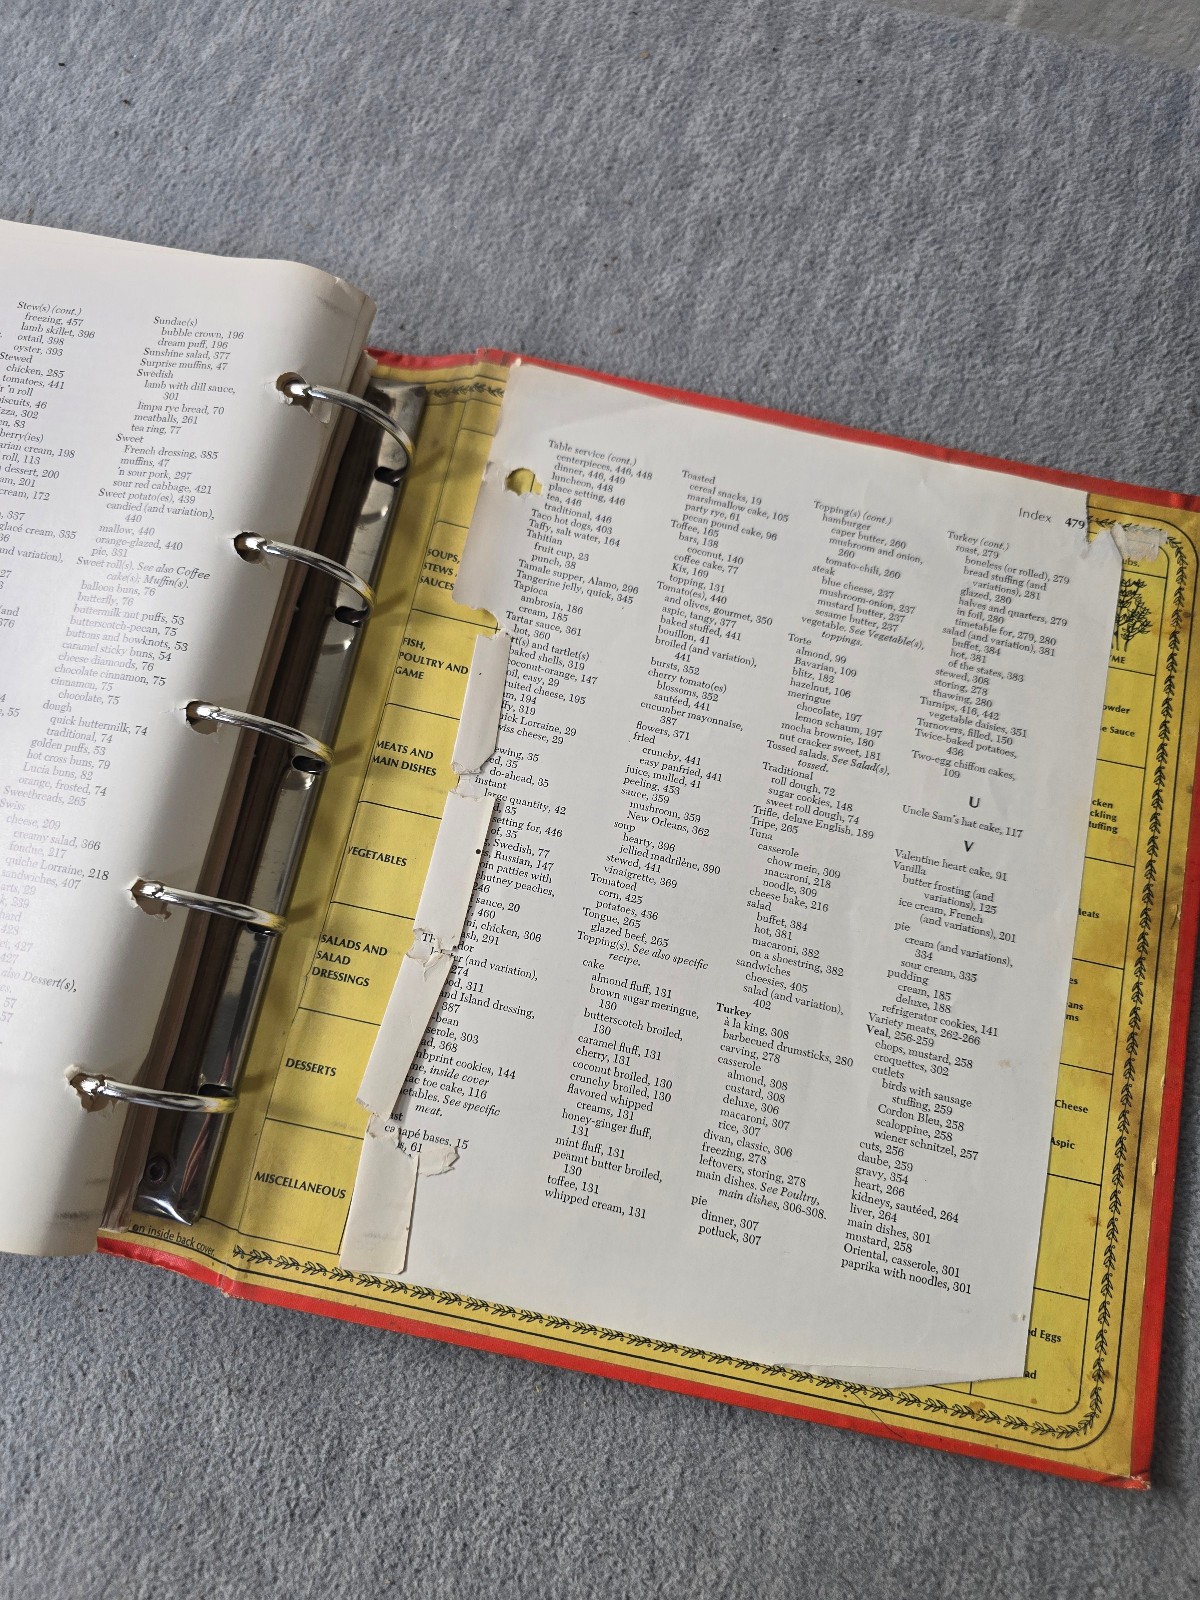 Stew(s) (cont.)
freezing, 457
lamb skillet, 396
oxtail, 398
oyster, 393
Stewed
chicken, 285
tomatoes, 441
'n roll
biscuits, 46
302
83
berry(ies)
cream, 198
roll, 113
dessert, 200
201
cream, 172
337
glacé cream, 335
36
and variation),
27
and
376
55
Sundae(s)
bubble crown, 196
dream puff, 196
Sunshine salad, 377
Surprise muffins, 47
Swedish
lamb with dill sauce,
301
limpa rye bread, 70
meatballs, 261
tea ring, 77
Sweet
French dressing, 385
muffins, 47
'n sour pork, 297
sour red cabbage, 421
Sweet potato(es), 439
candied (and variation),
440
mallow, 440
orange-glazed, 440
pie, 331
Sweet roll(s). See also Coffee
cake(s); Muffin(s).
balloon buns, 76
butterfly, 76
buttermilk nut puffs, 53
butterscotch-pecan, 75
buttons and bowknots, 53
caramel sticky buns, 54
cheese diamonds, 76
chocolate cinnamon, 75
cinnamon, 75
chocolate, 75
dough
quick buttermilk, 74
traditional, 74
golden puffs, 53
hot cross buns, 79
Lucia buns, 82
orange, frosted, 74
Sweetbreads, 265
Swiss
cheese, 209
creamy salad, 366
fondue, 217
quiche Lorraine, 218
sandwiches, 407
29
339
428
427
427
also Dessert(s),
57
57
on inside back cover.
SOUPS,
STEWS,
SAUCES
FISH,
POULTRY AND
GAME
MEATS AND
MAIN DISHES
VEGETABLES
SALADS AND
SALAD
DRESSINGS
DESSERTS
MISCELLANEOUS
Index 479
Table service (cont.)
centerpieces, 446, 448
dinner, 446, 449
luncheon, 448
place setting, 446
tea, 446
traditional, 446
Taco hot dogs, 403
Taffy, salt water, 164
Tahitian
fruit cup, 23
punch, 38
Tamale supper, Alamo, 296
Tangerine jelly, quick, 345
Tapioca
ambrosia, 186
cream, 185
Tartar sauce, 361
hot, 360
rt(s) and tartlet(s)
baked shells, 319
coconut-orange, 147
oil, easy, 29
ruited cheese, 195
194
319
ick Lorraine, 29
wiss cheese, 29
ewing, 35
ed, 35
do-ahead, 35
instant
large quantity, 42
35
setting for, 446
of, 35
Swedish, 77
Russian, 147
pin patties with
chutney peaches,
246
sauce, 20
460
ni, chicken, 306
ash, 291
er (and variation),
274
ood, 311
and Island dressing,
387
bean
serole, 303
ad, 368
mbprint cookies, 144
me, inside cover
tac toe cake, 116
getables. See specific
meat.
ast
canapé bases, 15
61
Toasted
cereal snacks, 19
marshmallow cake, 105
party rye, 61
pecan pound cake, 96
Toffee, 165
bars, 138
coconut, 140
coffee cake, 77
Kix, 169
topping, 131
Tomato(es), 440
and olives, gourmet, 350
aspic, tangy, 377
baked stuffed, 441
bouillon, 41
broiled (and variation),
441
bursts, 352
cherry tomato(es)
blossoms, 352
sautéed, 441
cucumber mayonnaise,
387
flowers, 371
fried
crunchy, 441
easy panfried, 441
juice, mulled, 41
peeling, 453
sauce, 359
mushroom, 359
New Orleans, 362
soup
hearty, 396
jellied madrilène, 390
stewed, 441
vinaigrette, 369
Tomatoed
corn, 425
potatoes, 436
Tongue, 265
glazed beef, 265
Topping(s). See also specific
recipe.
cake
almond fluff, 131
brown sugar meringue,
130
butterscotch broiled,
130
caramel fluff, 131
cherry, 131
coconut broiled, 130
crunchy broiled, 130
flavored whipped
creams, 131
honey-ginger fluff,
131
mint fluff, 131
peanut butter broiled,
130
toffee, 131
whipped cream, 131
Topping(s) (cont.)
hamburger
caper butter, 260
mushroom and onion,
260
tomato-chili, 260
steak
blue cheese, 237
mushroom-onion, 237
mustard butter, 237
sesame butter, 237
vegetable. See Vegetable(s),
toppings.
Torte
almond, 99
Bavarian, 109
blitz, 182
hazelnut, 106
meringue
chocolate, 197
lemon schaum, 197
mocha brownie, 180
nut cracker sweet, 181
Tossed salads. See Salad(s),
tossed.
Traditional
roll dough, 72
sugar cookies, 148
sweet roll dough, 74
Trifle, deluxe English, 189
Tripe, 265
Tuna
casserole
chow mein, 309
macaroni, 218
noodle, 309
cheese bake, 216
salad
buffet, 384
hot, 381
macaroni, 382
on a shoestring, 382
sandwiches
cheesies, 405
salad (and variation),
402
Turkey
à la king, 308
barbecued drumsticks, 280
carving, 278
casserole
almond, 308
custard, 308
deluxe, 306
macaroni, 307
rice, 307
divan, classic, 306
freezing, 278
leftovers, storing, 278
main dishes. See Poultry,
main dishes, 306-308.
pie
dinner, 307
potluck, 307
Turkey (cont.)
roast, 279
boneless (or rolled), 279
bread stuffing (and
variations), 281
glazed, 280
halves and quarters, 279
in foil, 280
timetable for, 279, 280
salad (and variation), 381
buffet, 384
hot, 381
of the states, 383
stewed, 308
storing, 278
thawing, 280
Turnips, 416, 442
vegetable daisies, 351
Turnovers, filled, 150
Twice-baked potatoes,
436
Two-egg chiffon cakes,
109
U
Uncle Sam's hat cake, 117
V
Valentine heart cake, 91
Vanilla
butter frosting (and
variations), 125
ice cream, French
(and variations), 201
pie
cream (and variations),
334
sour cream, 335
pudding
cream, 185
deluxe, 188
refrigerator cookies, 141
Variety meats, 262-266
Veal, 256-259
chops, mustard, 258
croquettes, 302
cutlets
birds with sausage
stuffing, 259
Cordon Bleu, 258
scaloppine, 258
wiener schnitzel, 257
cuts, 256
daube, 259
gravy, 354
heart, 266
kidneys, sautéed, 264
liver, 264
main dishes, 301
mustard, 258
Oriental, casserole, 301
paprika with noodles, 301
bs.
YME
owder
e Sauce
cken
ckling
tuffing
Meats
es
ans
ms
Cheese
Aspic
d Eggs
ad